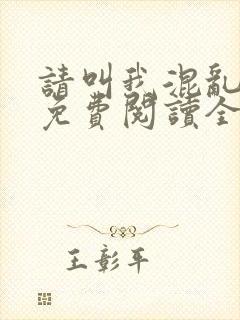 請叫我混亂
免費閱讀全
王彰平